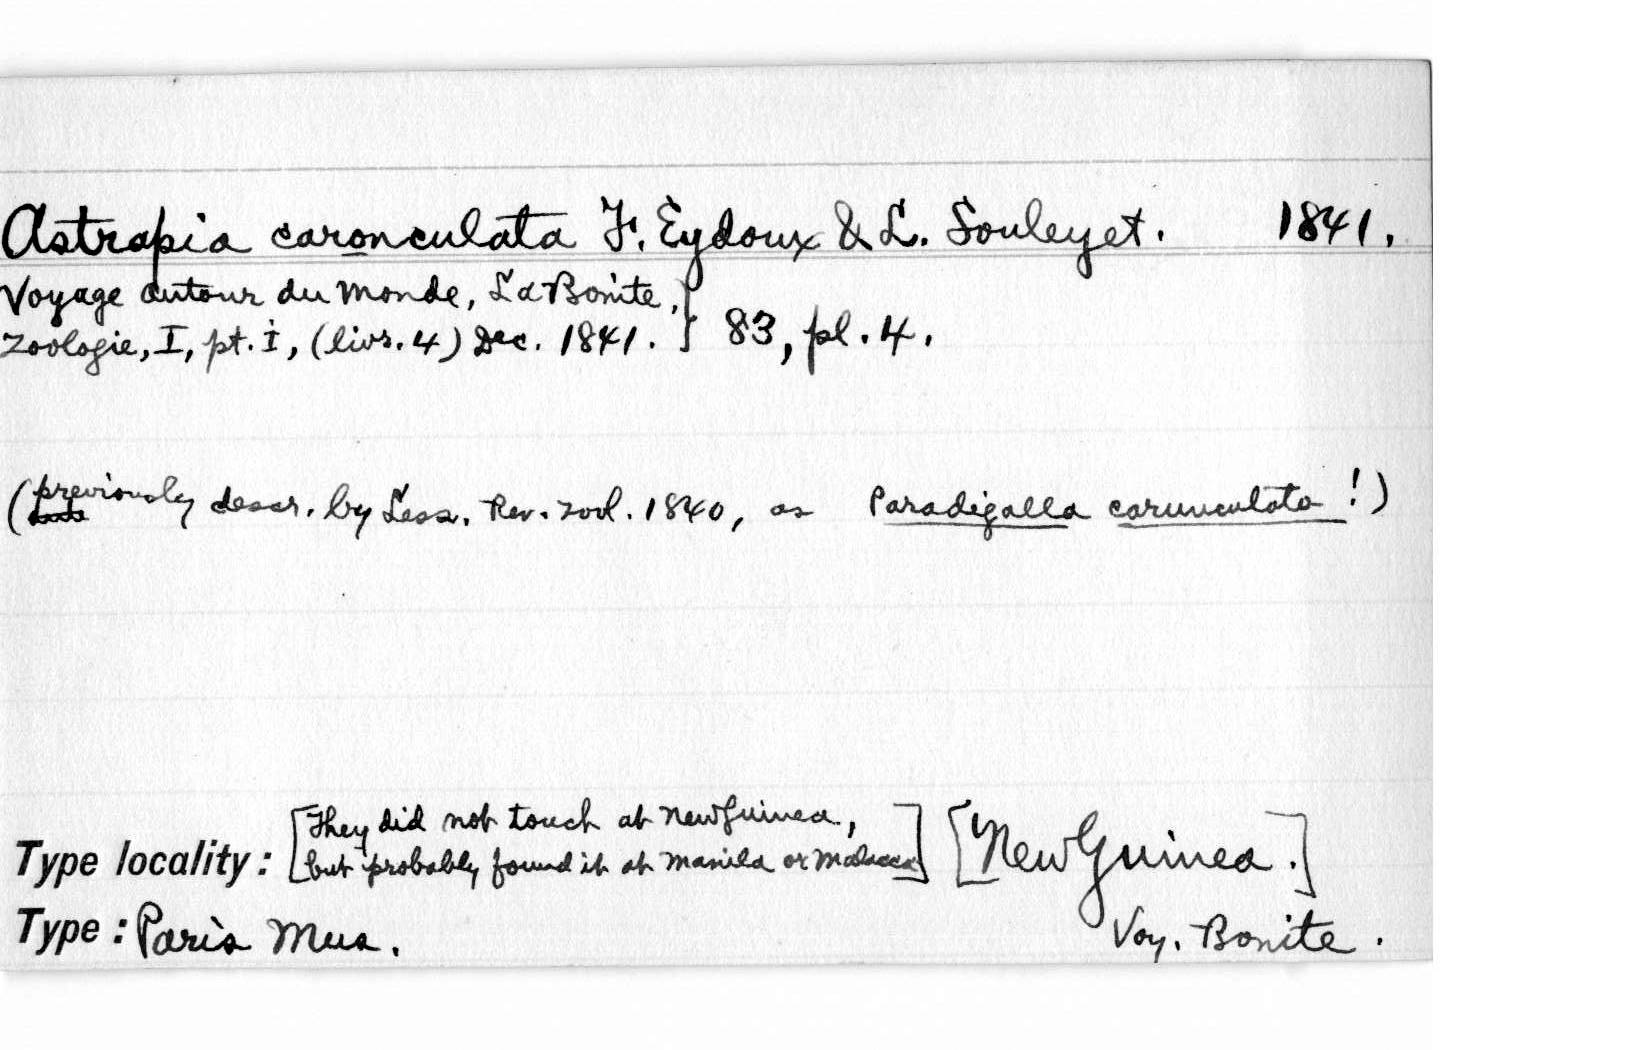 Astrapia caronculata F. Eydoux & L. Souleyet. 1841.
Voyage autour du Monde, La Bonite,
Zoologie, I, pt. i, (livr. 4) Dec. 1841. } 83, pl. 4.
(previously descr. by Less. Rev. Zool. 1840, as Paradigalla carunculata!)
Type locality: [They did not touch at New Guinea,
but probably found it at Manila or Malacca] [New Guinea.]
Type: Paris Mus. Voy. Bonite.